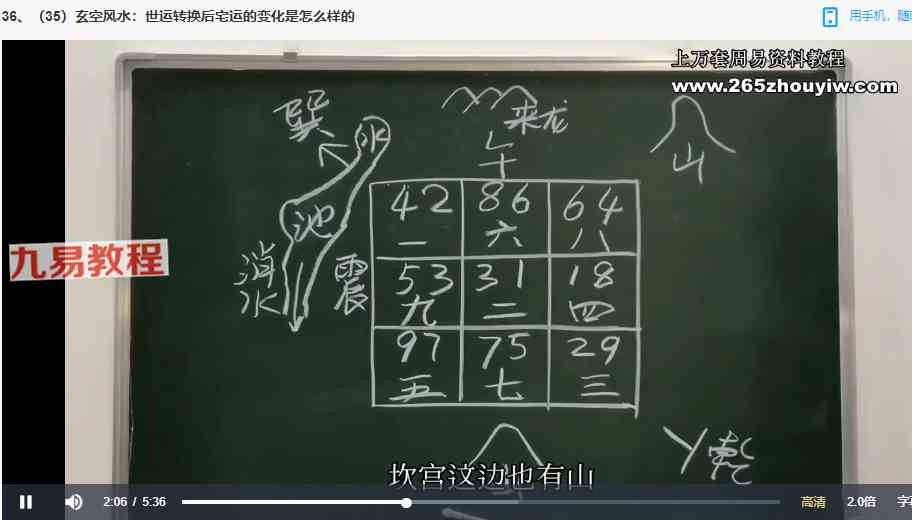 36、（35）玄空风水：世运转换后宅运的变化是怎么样的
用手机，随
上万套周易资料教程
www.265zhouyiw.com
巽
水
来龙
午
山
池
消水
震
九易教程
42 86 64
一 六 八
53 31 18
九 二 四
97 75 29
五 七 三
乾
坎宫这边也有山
2:06 / 5:36
高清
2.0倍
字